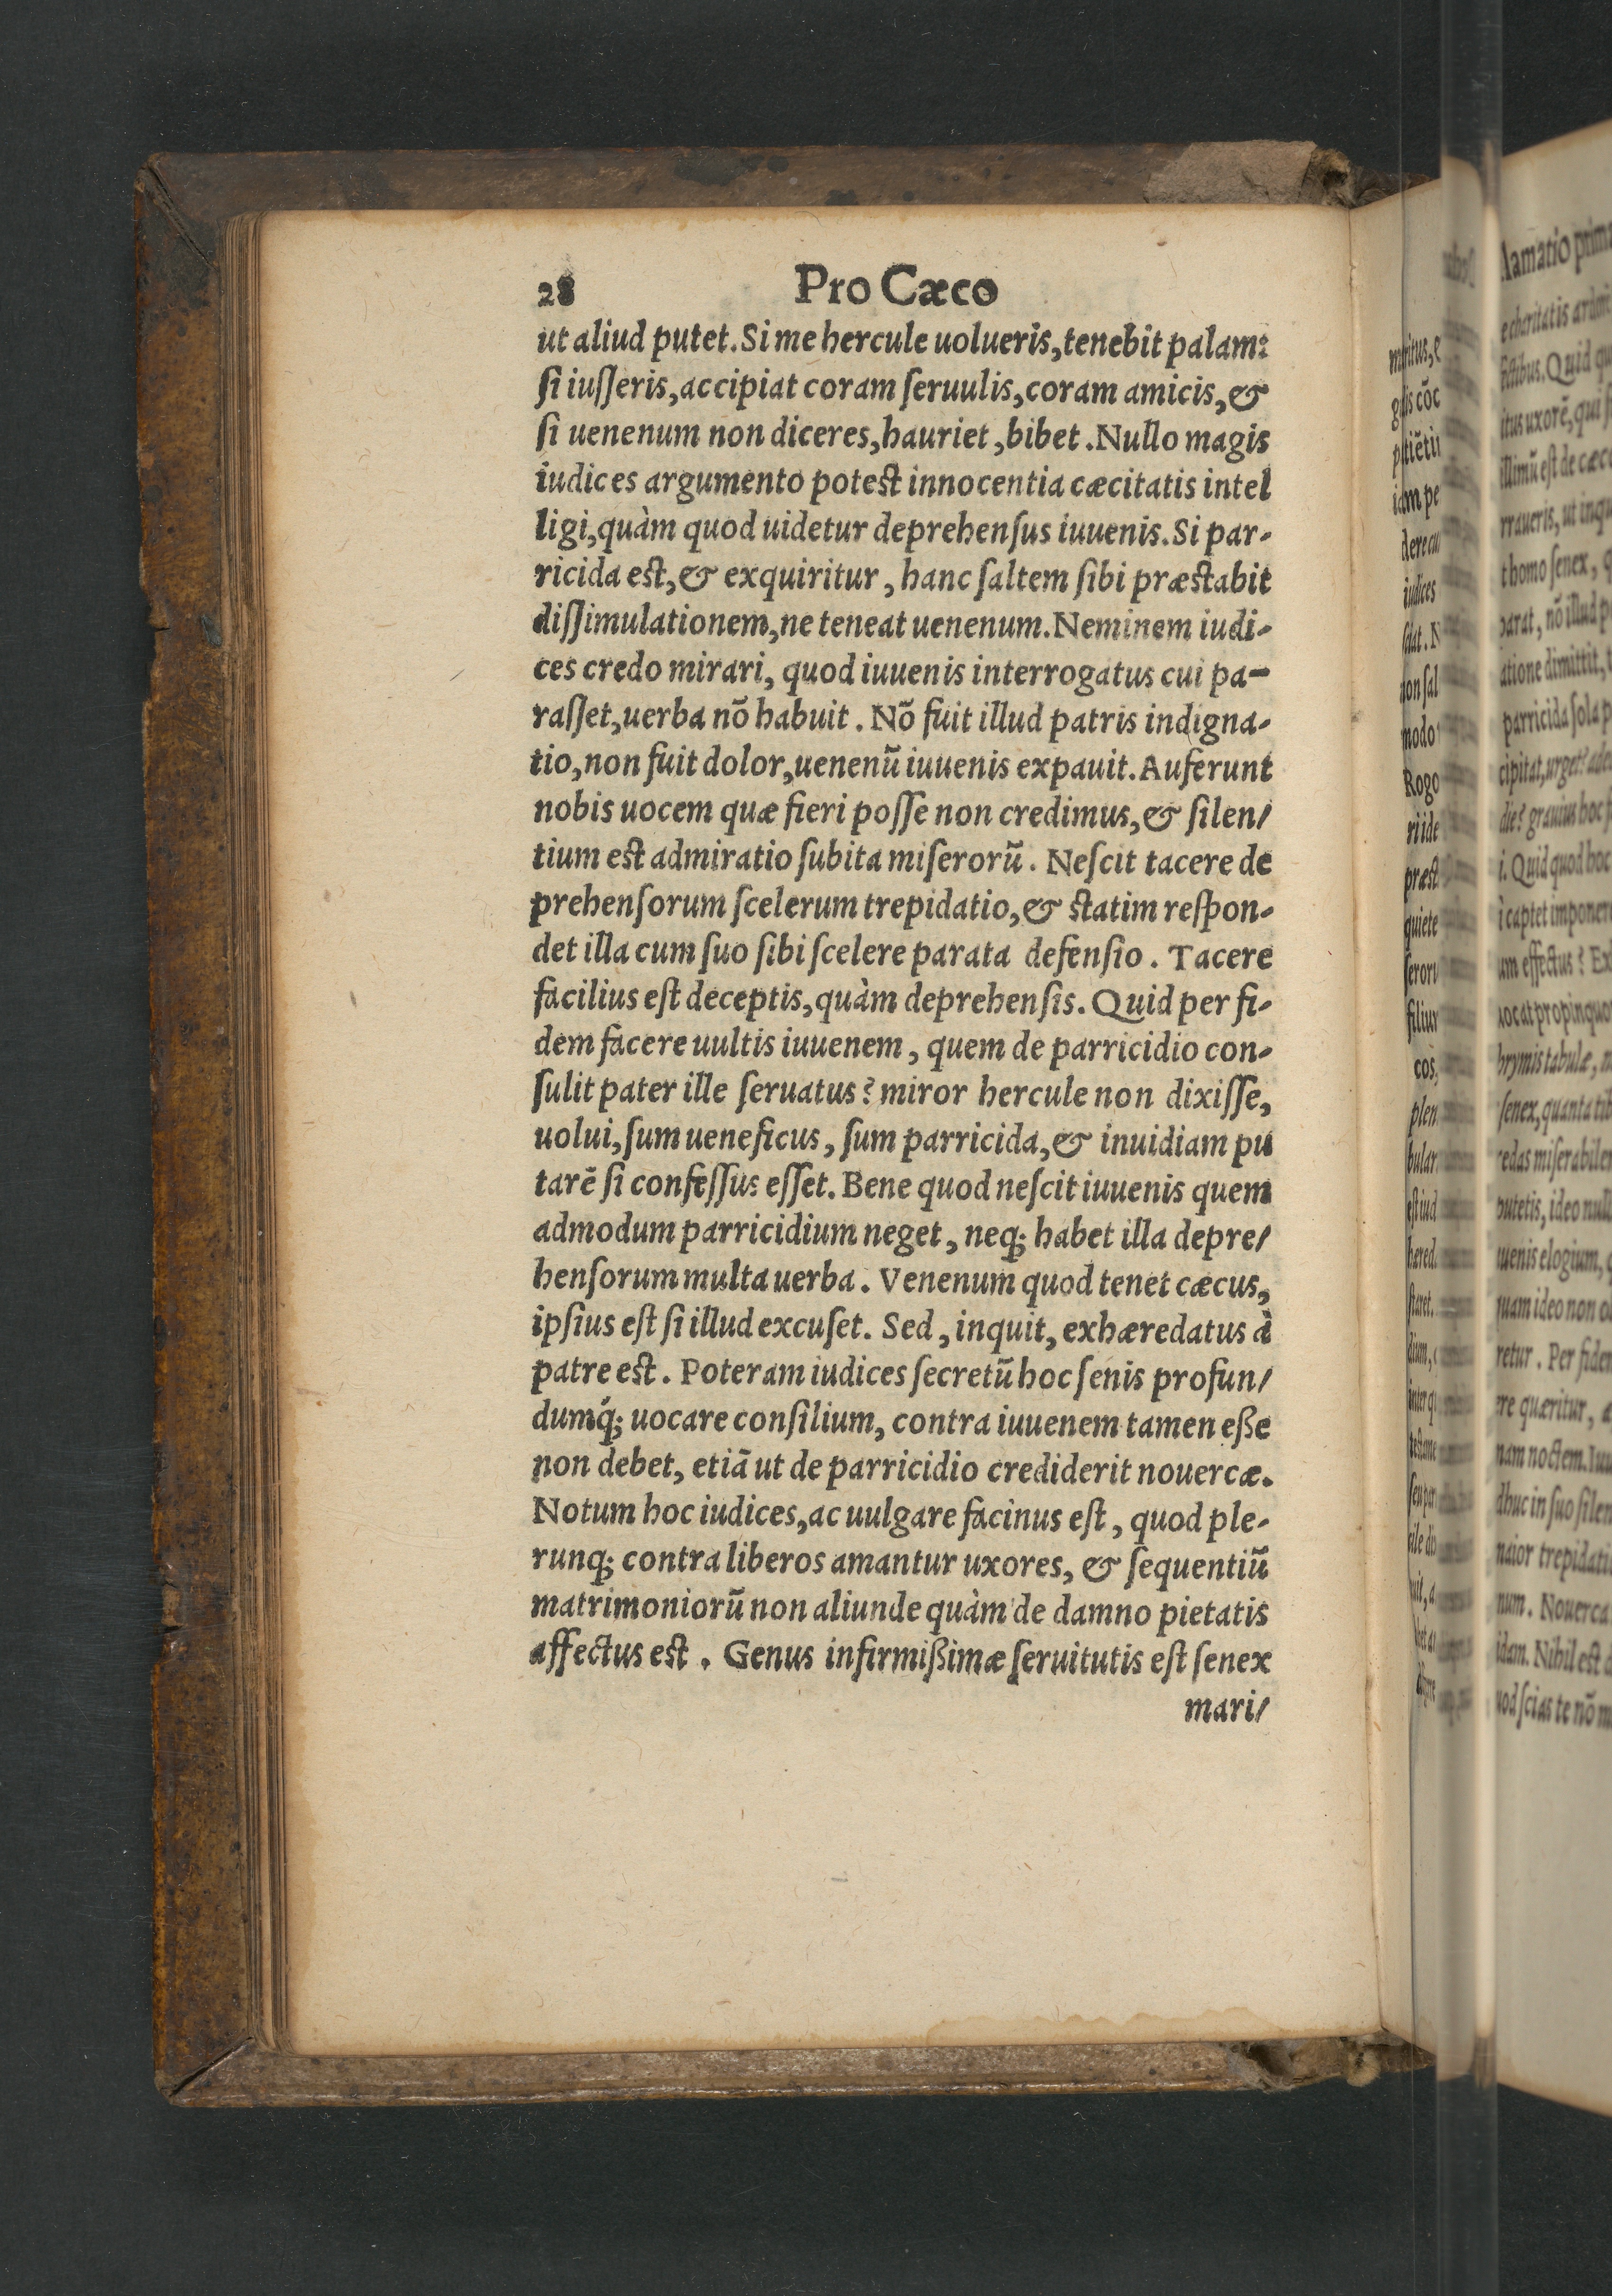 28 Pro Cæco
ut aliud putet. Si me hercule uolueris, tenebit palam:
ſi iuſſeris, accipiat coram ſeruulis, coram amicis, &
ſi uenenum non diceres, hauriet, bibet. Nullo magis
iudices argumento poteſt innocentia cæcitatis intel
ligi, quàm quod uidetur deprehenſus iuuenis. Si par-
ricida eſt, & exquiritur, hanc ſaltem ſibi præſtabit
diſſimulationem, ne teneat uenenum. Neminem iudi-
ces credo mirari, quod iuuenis interrogatus cui pa-
raſſet, uerba nō habuit. Nō fuit illud patris indigna-
tio, non fuit dolor, uenenū iuuenis expauit. Auferunt
nobis uocem quæ fieri poſſe non credimus, & ſilen/
tium eſt admiratio ſubita miſerorū. Neſcit tacere de
prehenſorum ſcelerum trepidatio, & ſtatim reſpon-
det illa cum ſuo ſibi ſcelere parata defenſio. Tacere
facilius eſt deceptis, quàm deprehenſis. Quid per fi-
dem facere uultis iuuenem, quem de parricidio con-
ſulit pater ille ſeruatus? miror hercule non dixiſſe,
uolui, ſum ueneficus, ſum parricida, & inuidiam pu
tarē ſi confeſſus eſſet. Bene quod neſcit iuuenis quem
admodum parricidium neget, neq; habet illa depre/
henſorum multa uerba. Venenum quod tenet cæcus,
ipſius eſt ſi illud excuſet. Sed, inquit, exhæredatus à
patre eſt. Poteram iudices ſecretū hoc ſenis profun/
dumq́; uocare conſilium, contra iuuenem tamen eße
non debet, etiā ut de parricidio crediderit nouercæ.
Notum hoc iudices, ac uulgare facinus eſt, quod ple-
runq; contra liberos amantur uxores, & ſequentiū
matrimoniorū non aliunde quàm de damno pietatis
affectus eſt. Genus infirmißimæ ſeruitutis eſt ſenex
mari/